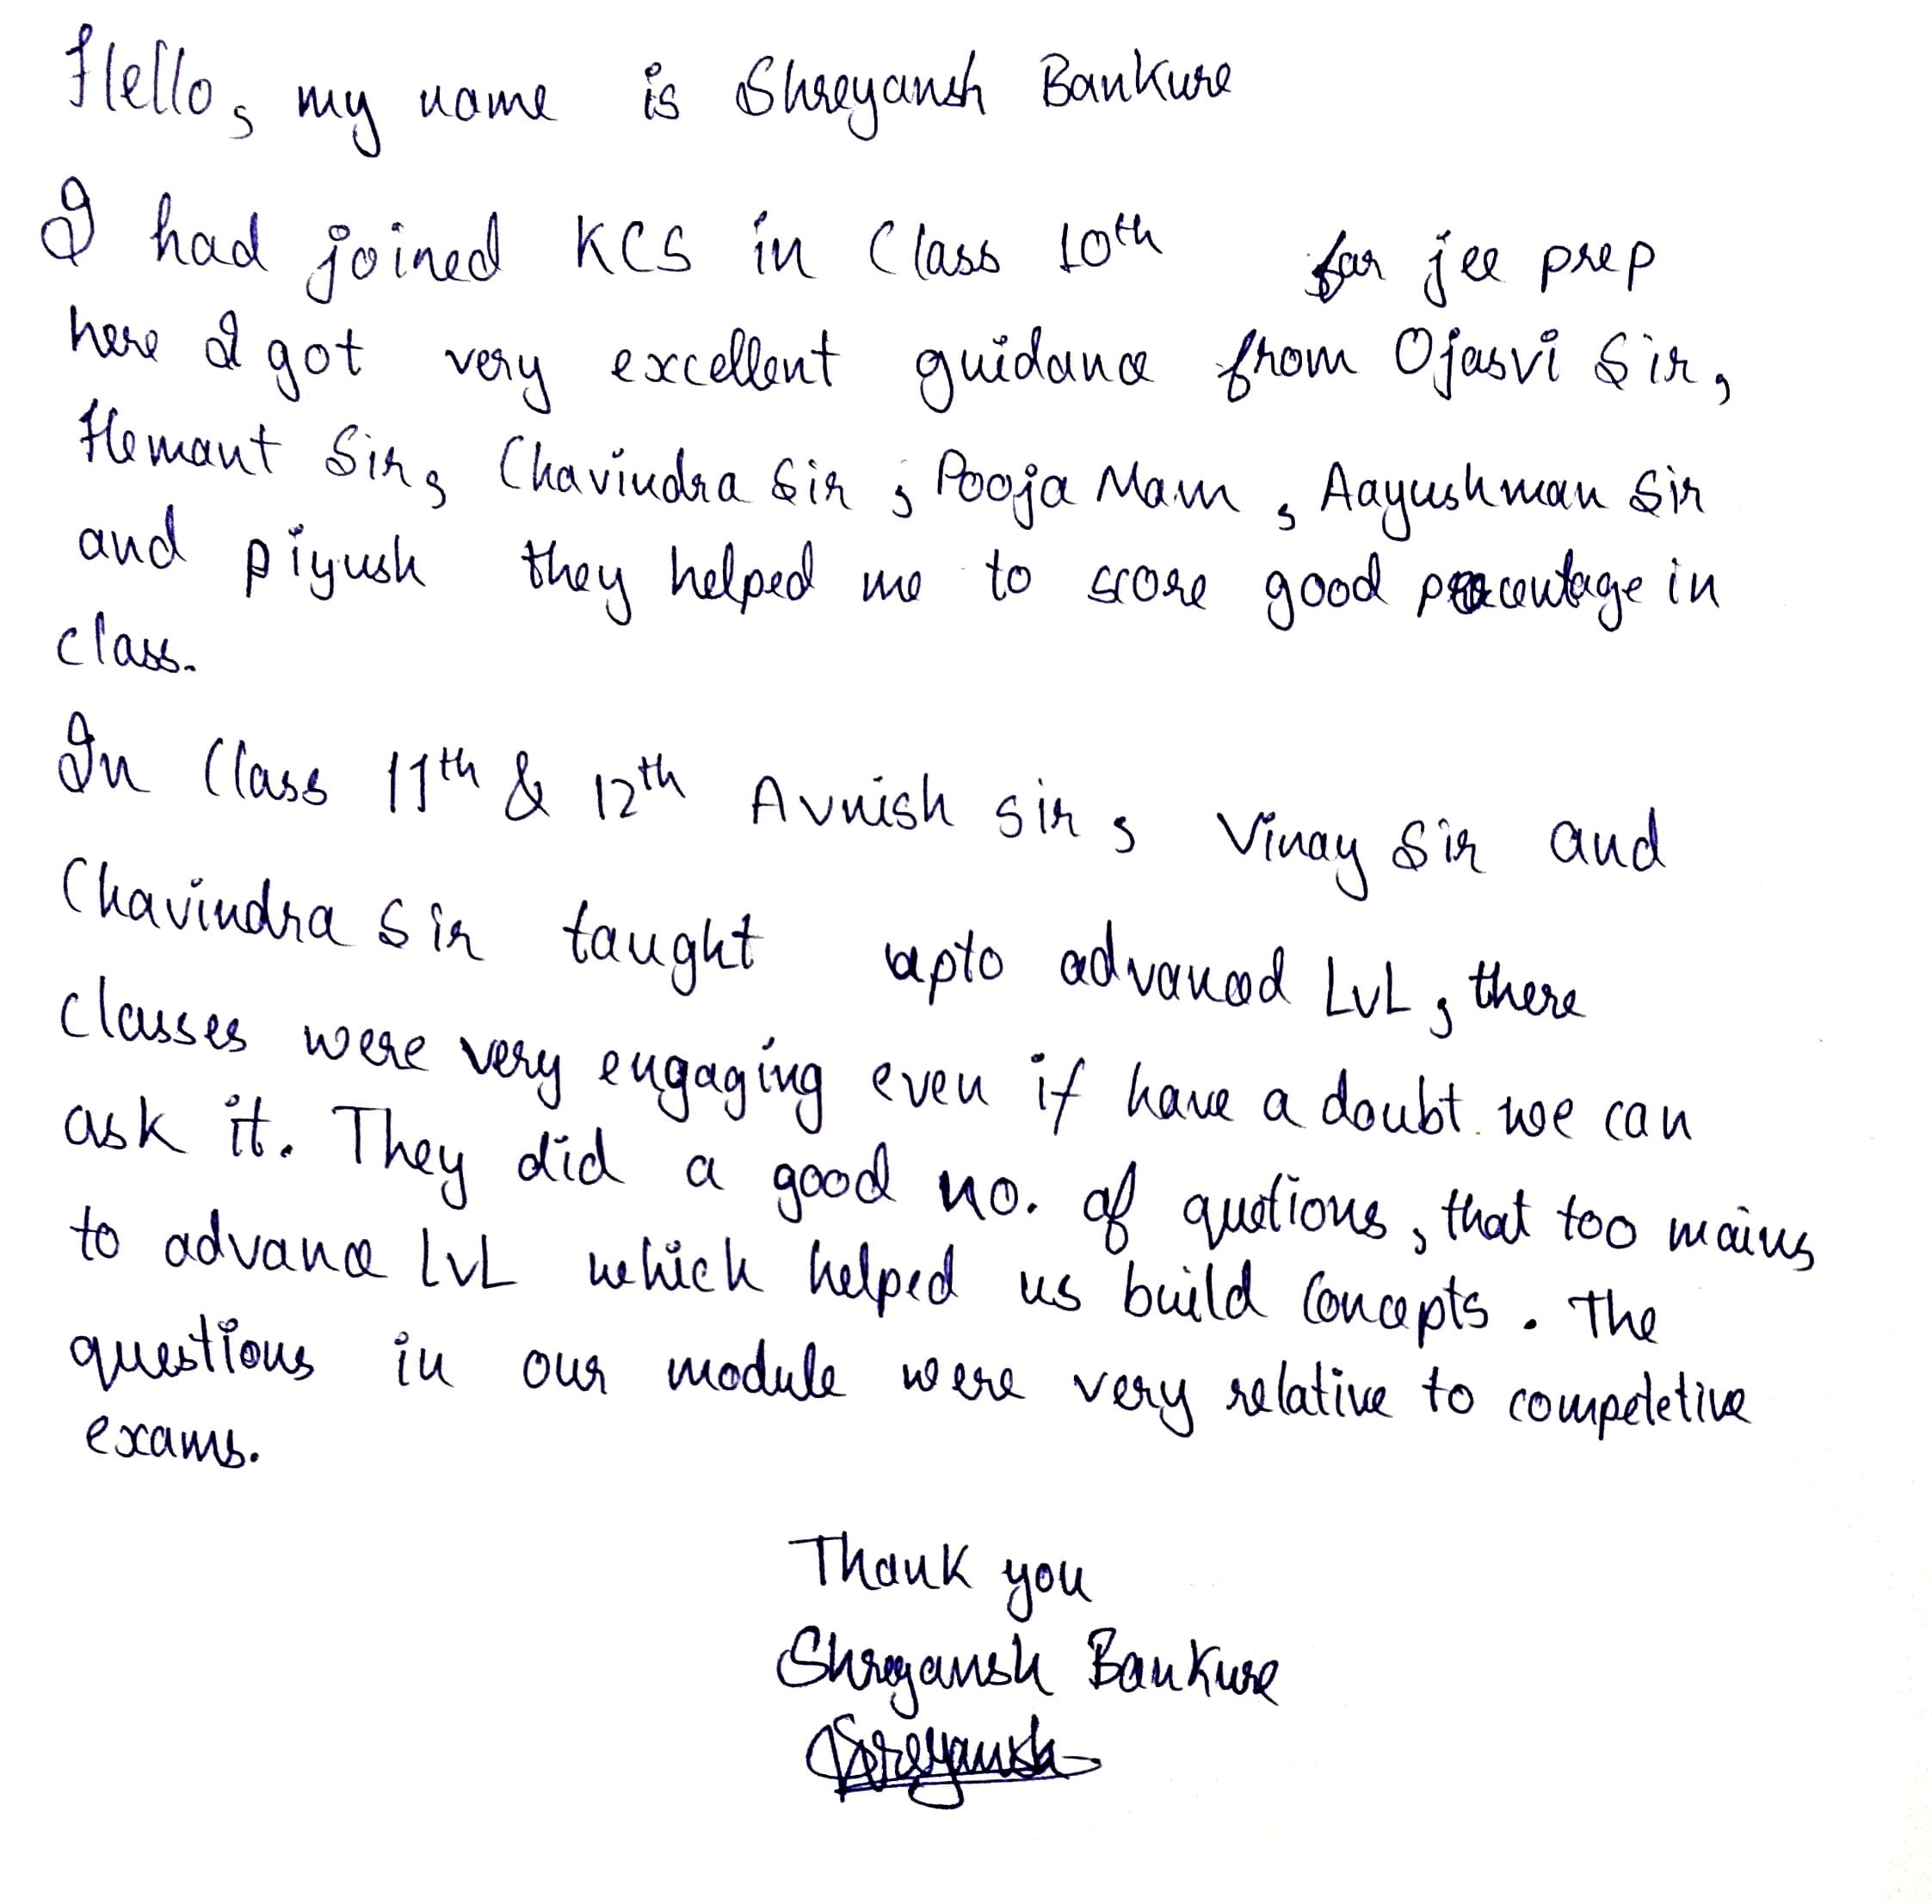 Hello, my name is Shreyansh Bankure
I had joined KCS in Class 10th for jee prep
here I got very excellent guidance from Ojasvi Sir,
Hemant Sir, Chavindra Sir, Pooja Mam, Aayushman Sir
and piyush they helped me to score good percentage in
class.
In Class 11th & 12th Avnish sir, Vinay Sir and
Chavindra Sir taught upto advanced LvL, there
classes were very engaging even if have a doubt we can
ask it. They did a good no. of quetions, that too mains
to advance LvL which helped us build Concepts. The
questions in our module were very relative to competetive
exams.
Thank you
Shreyansh Bankure
Shreyansh